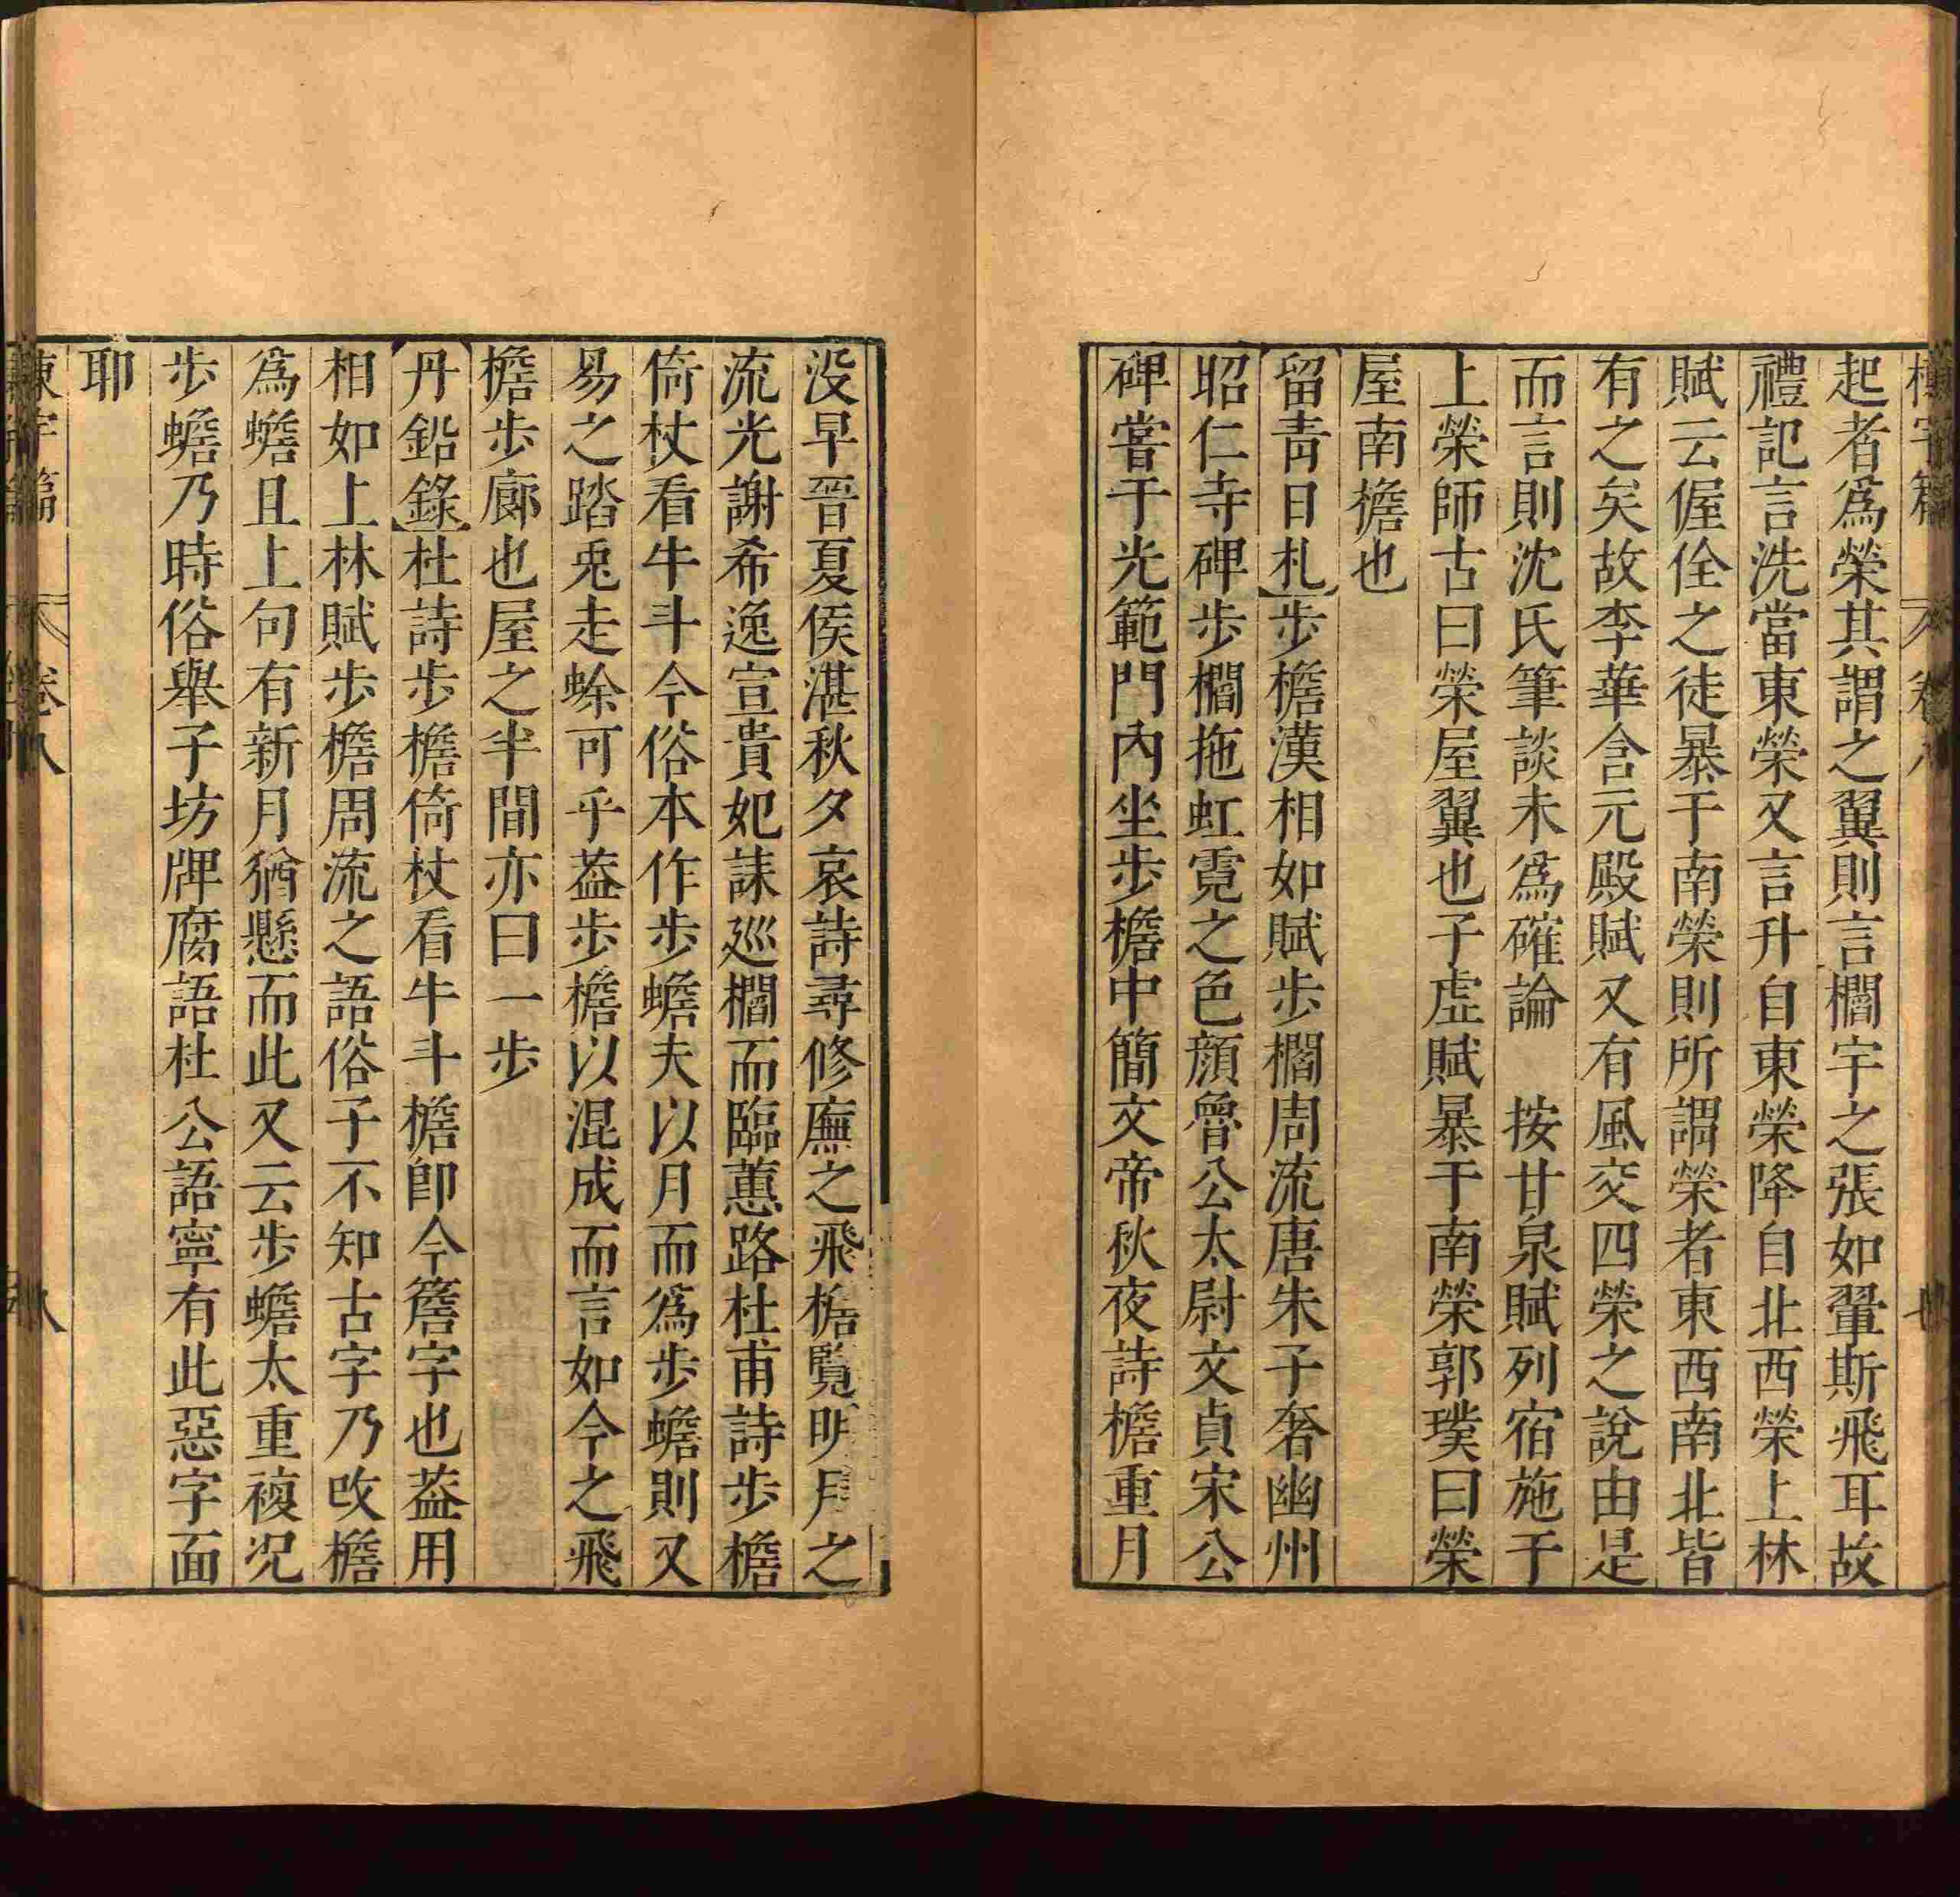 起者爲榮其謂之翼則言櫩宇之張如翬斯飛耳故
禮記言洗當東榮又言升自東榮降自北西榮上林
賦云偓佺之徒暴于南榮則所謂榮者東西南北皆
有之矣故李華含元殿賦又有風交四榮之說由是
而言則沈氏筆談未爲確論　按甘泉賦列宿施于
上榮師古曰榮屋翼也子虛賦暴于南榮郭璞曰榮
屋南檐也
留青日札步檐漢相如賦步櫩周流唐朱子奢幽州
昭仁寺碑步櫩拖虹霓之色顔魯公太尉文貞宋公
碑嘗于光範門內坐步檐中簡文帝秋夜詩檐重月
没早晉夏侯湛秋夕哀詩尋修廡之飛檐覽明月之
流光謝希逸宣貴妃誄巡櫩而臨蕙路杜甫詩步檐
倚杖看牛斗今俗本作步蟾夫以月而爲步蟾則又
易之踏兎走蜍可乎葢步檐以混成而言如今之飛
檐步廊也屋之半間亦曰一步
丹鉛錄杜詩步檐倚杖看牛斗檐卽今簷字也葢用
相如上林賦步檐周流之語俗子不知古字乃改檐
爲蟾且上句有新月猶懸而此又云步蟾太重複況
步蟾乃時俗舉子坊牌腐語杜公語寧有此惡字面
耶
卷八
八